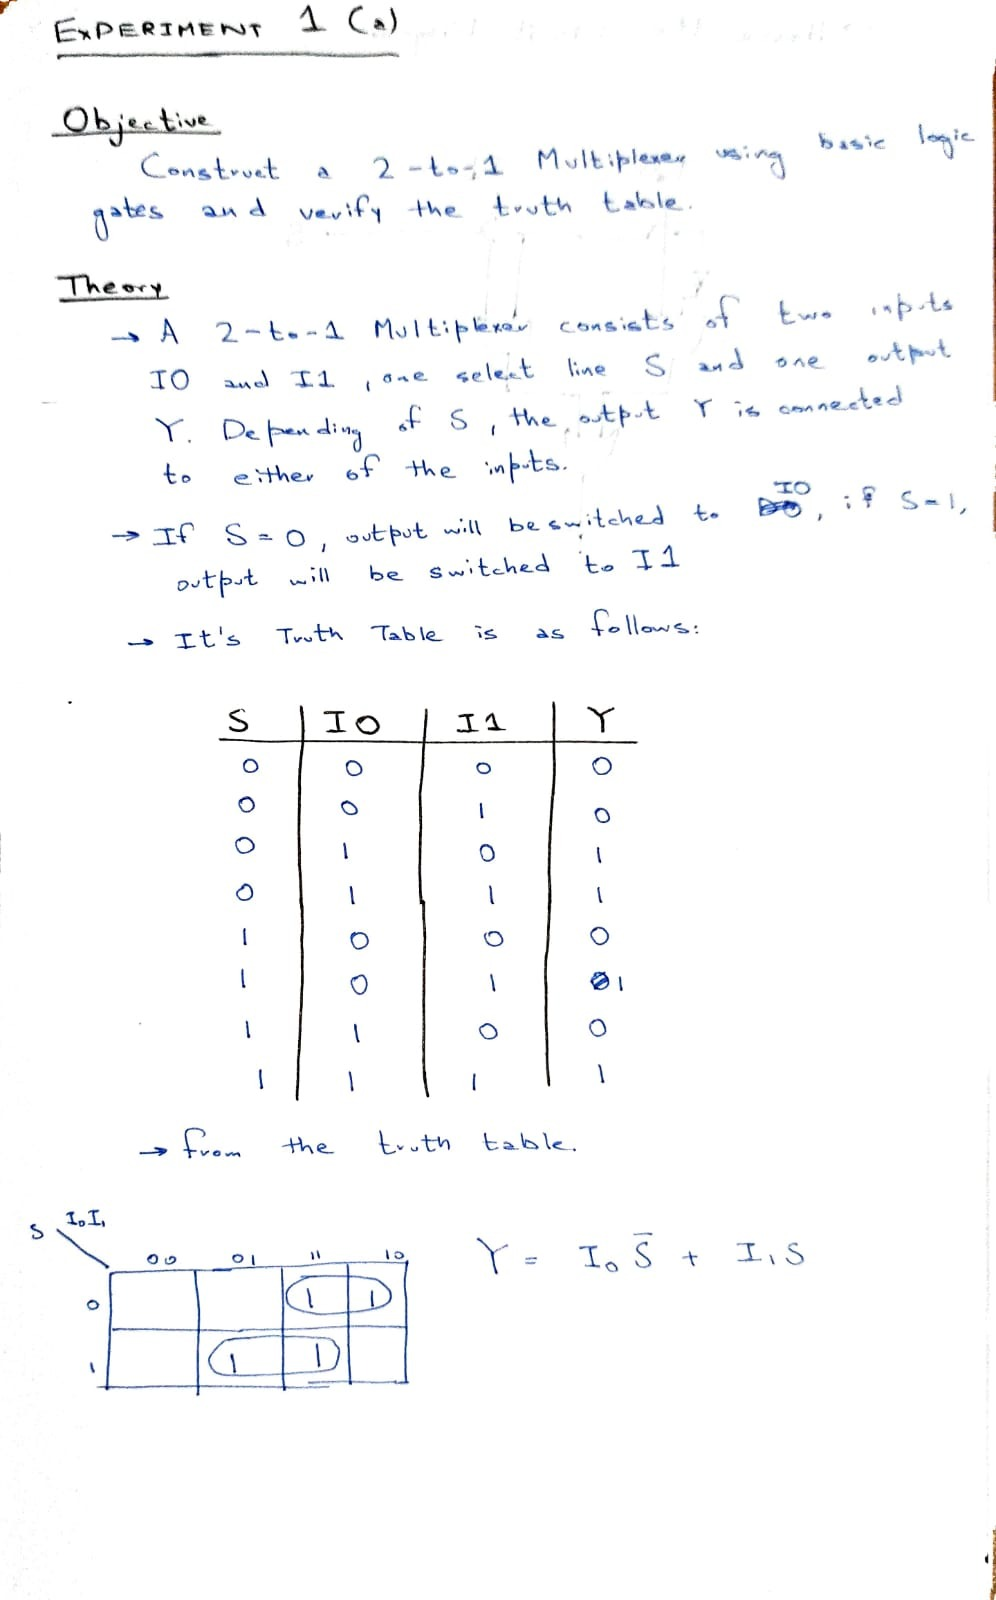 EXPERIMENT 1 (a)
Objective
Construct a 2-to-1 Multiplexer using basic logic
gates and verify the truth table.
Theory
→ A 2-to-1 Multiplexer consists of two inputs
IO and I1, one select line S and one output
Y. Depending of S, the output Y is connected
to either of the inputs.
→ If S = 0, output will be switched to IO, if S=1,
output will be switched to I1
→ It's Truth Table is as follows:
S | IO | I1 | Y
0 0 0 0
0 0 1 0
0 1 0 1
0 1 1 1
1 0 0 0
1 0 1 1
1 1 0 0
1 1 1 1
→ from the truth table.
S I₀I₁
00 01 11 10
0 1 1
1 1 1
Y = I₀ S̄ + I₁S